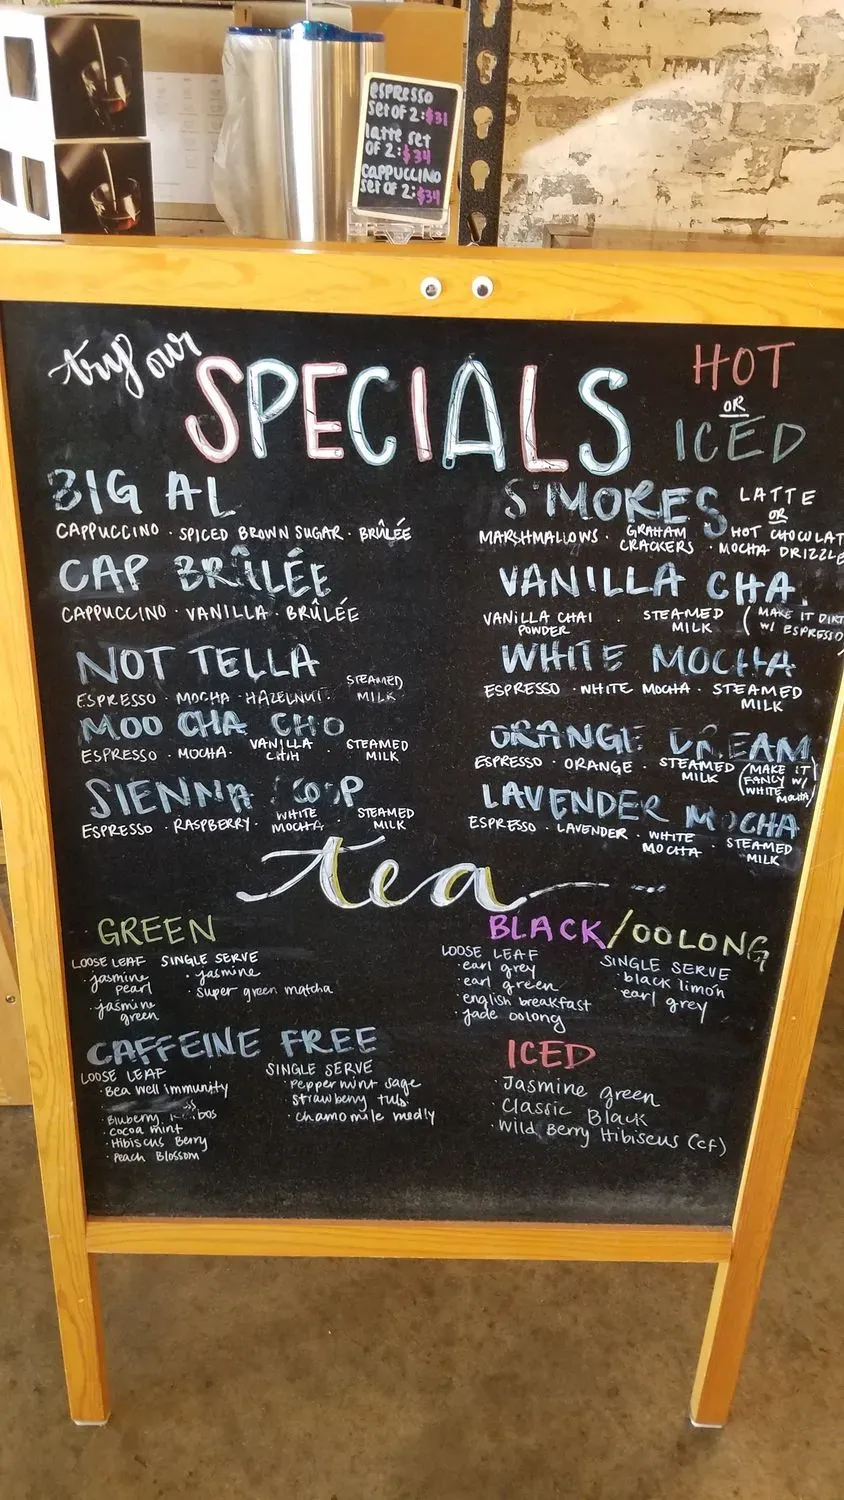 espresso
set of 2: $31
latte set
of 2: $34
cappuccino
set of 2: $34
try our
SPECIALS
HOT
OR
ICED
BIG AL
CAPPUCCINO · SPICED BROWN SUGAR · BRÛLÉE
CAP BRÛLÉE
CAPPUCCINO · VANILLA · BRÛLÉE
NOT TELLA
ESPRESSO · MOCHA · HAZELNUT · STEAMED MILK
MOO CHA CHO
ESPRESSO · MOCHA · VANILLA · STEAMED MILK
SIENNA
ESPRESSO · RASPBERRY · WHITE MOCHA · STEAMED MILK
S'MORES LATTE
OR
HOT CHOCLAT
MARSHMALLOWS · GRAHAM CRACKERS · MOCHA DRIZZLE
VANILLA CHA
VANILLA CHAI POWDER · STEAMED MILK (MAKE IT DIRT
W/ ESPRESSO)
WHITE MOCHA
ESPRESSO · WHITE MOCHA · STEAMED MILK
ORANGE DREAM
ESPRESSO · ORANGE · STEAMED MILK (MAKE IT FANCY W/ WHITE MOCHA)
LAVENDER MOCHA
ESPRESSO · LAVENDER · WHITE MOCHA · STEAMED MILK
tea
GREEN
LOOSE LEAF
· jasmine pearl
· jasmine green
SINGLE SERVE
· jasmine
· super green matcha
BLACK/OOLONG
LOOSE LEAF
· earl grey
· earl green
· english breakfast
· jade oolong
SINGLE SERVE
· black limon
· earl grey
CAFFEINE FREE
LOOSE LEAF
· Bea well immunity
· Blueberry
· cocoa mint
· Hibiscus Berry
· Peach Blossom
SINGLE SERVE
· Peppermint sage
· strawberry
· chamomile medly
ICED
· Jasmine green
· Classic Black
· Wild Berry Hibiscus (cf)